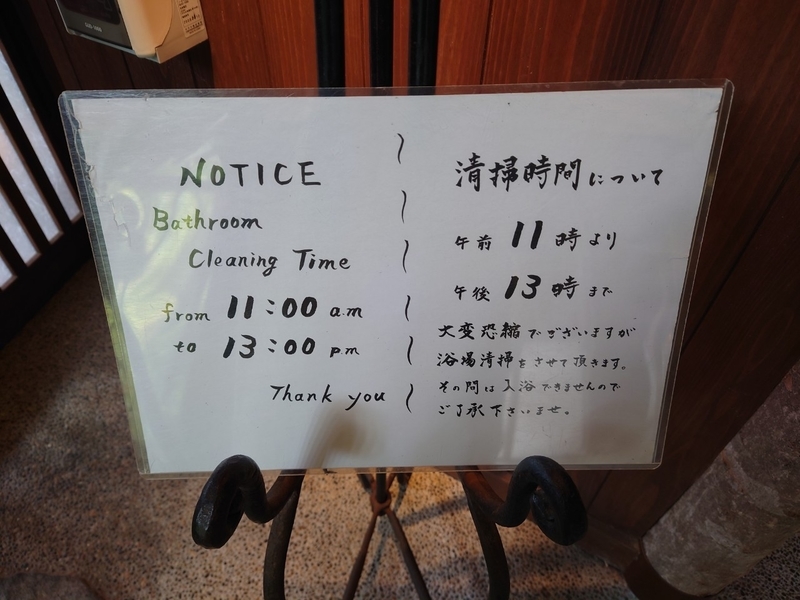 NOTICE
Bathroom
Cleaning Time
from 11:00 a.m
to 13:00 p.m
Thank you
清掃時間について
午前 11 時より
午後 13 時まで
大変恐縮でございますが
浴場清掃をさせて頂きます。
その間は入浴できませんので
ご了承下さいませ。